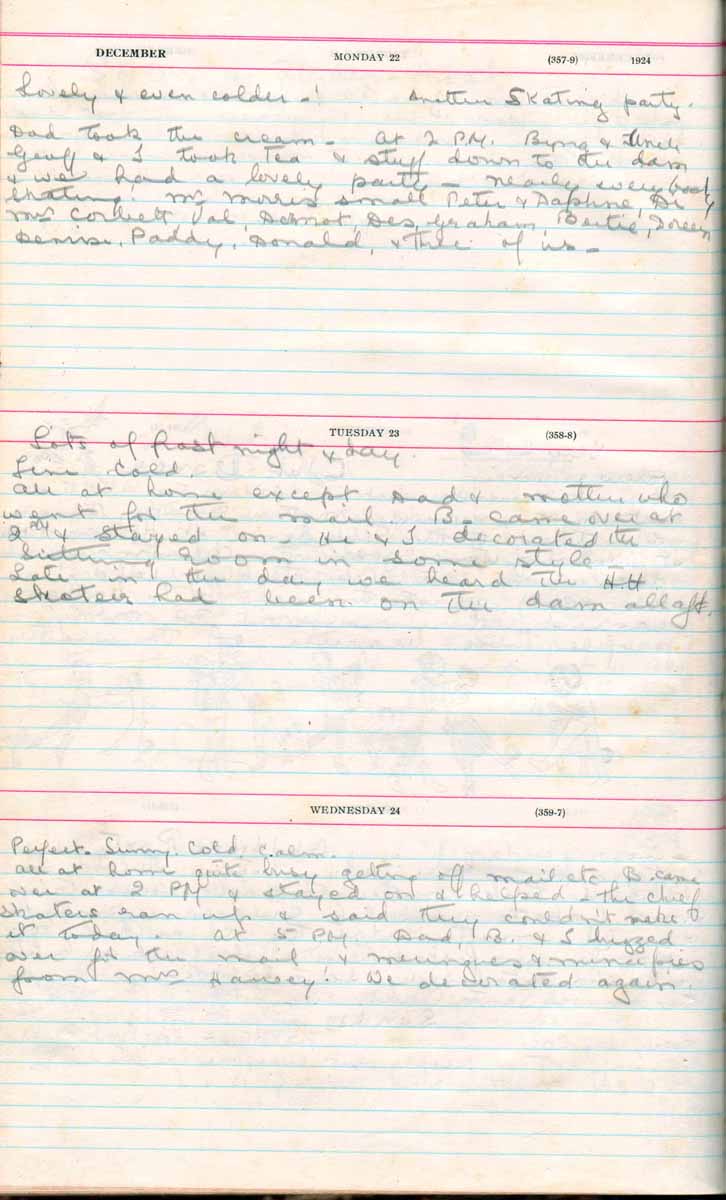 DECEMBER MONDAY 22 (357-9) 1924
Lovely & even colder - ! Another Skating party.
Dad took the cream - At 2 P.M. Byng & Uncle
Geoff & I took Tea & stuff down to the dam
& we had a lovely party - nearly everybody
skating. Mr Morris small Peter & Daphne, Di
Mrs Corbett Val, Dermot, Des, Graham, Bertie, Doreen
Denise, Paddy, Donald, & three of us -
TUESDAY 23 (358-8)
Lots of frost night & day.
Fine Cold.
All at home except Dad & mother who
went for the mail. B. came over at
2 & stayed on - He & I decorated the
Sitting Room in some style -
Late in the day we heard the H.H
Skaters had been on the dam all aft.
WEDNESDAY 24 (359-7)
Perfect. Sunny. Cold. Calm.
All at home quite busy getting off mail etc. B. came
over at 2 PM & stayed on & helped - the chief
skaters ran up & said they couldn't make
it today. At 5 P.M. Dad, B. & I
over for the mail & meringues & mincepies
from Mrs Harvey! We decorated again.